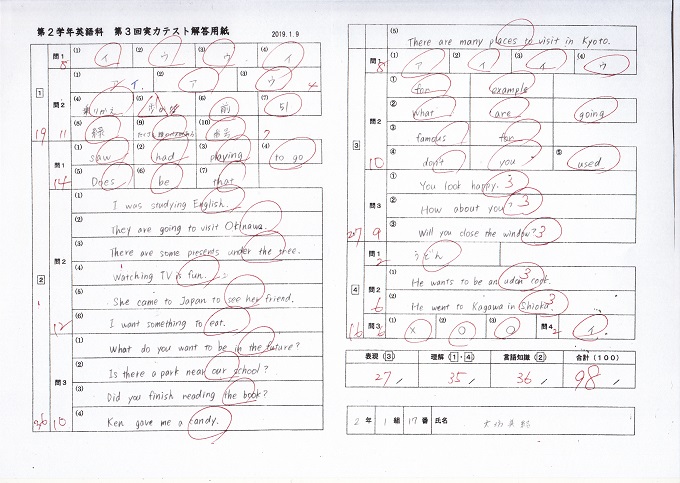 第2学年英語科 第3回実力テスト解答用紙
2019.1.9
1
問1 (1) イ (2) ウ (3) ウ (4) イ
8
問2 (1) イ (2) ア (3) ウ
4
(4) 乗りかえ (5) (6) 前 (7) 51
(8) 緑 (9) (10)
19 11 7
2
問1 (1) saw (2) had (3) playing (4) to go
(5) Does (6) be (7) that
14
問2
(1) I was studying English.
(2) They are going to visit Okinawa.
(3) There are some presents under the tree.
(4) Watching TV is fun.
(5) She came to Japan to see her friend.
(6) I want something to eat.
12
問3
(1) What do you want to be in the future?
(2) Is there a park near our school?
(3) Did you finish reading the book?
(4) Ken gave me a candy.
36 10
(5) There are many places to visit in Kyoto.
3
問1 (1) ア (2) イ (3) イ (4) ウ
8
問2
① for example
② What are going
③ famous for
④ don't you ⑤ used
10
問3
① You look happy. 3
② How about you? 3
③ Will you close the window? 3
27 9
4
問1 うどん
2
問2
(1) He wants to be an udon cook. 3
(2) He went to Kagawa in Shikoku. 3
6
問3 (1) × (2) ○ (3) ○ 問4 イ
16 6 2
表現(3) 理解(1・4) 言語知識(2) 合計(100)
27 35 36 98
2年 1組 17番 氏名